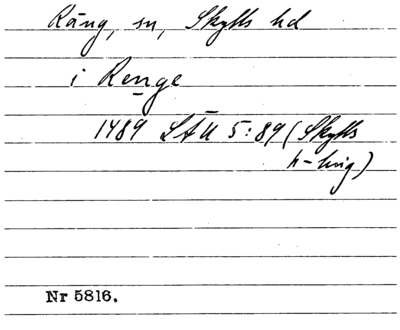 Räng, sn, Skytts hd
i Renge
1489 LÄU 5:89 (Skytts
h-ting)
Nr 5816.